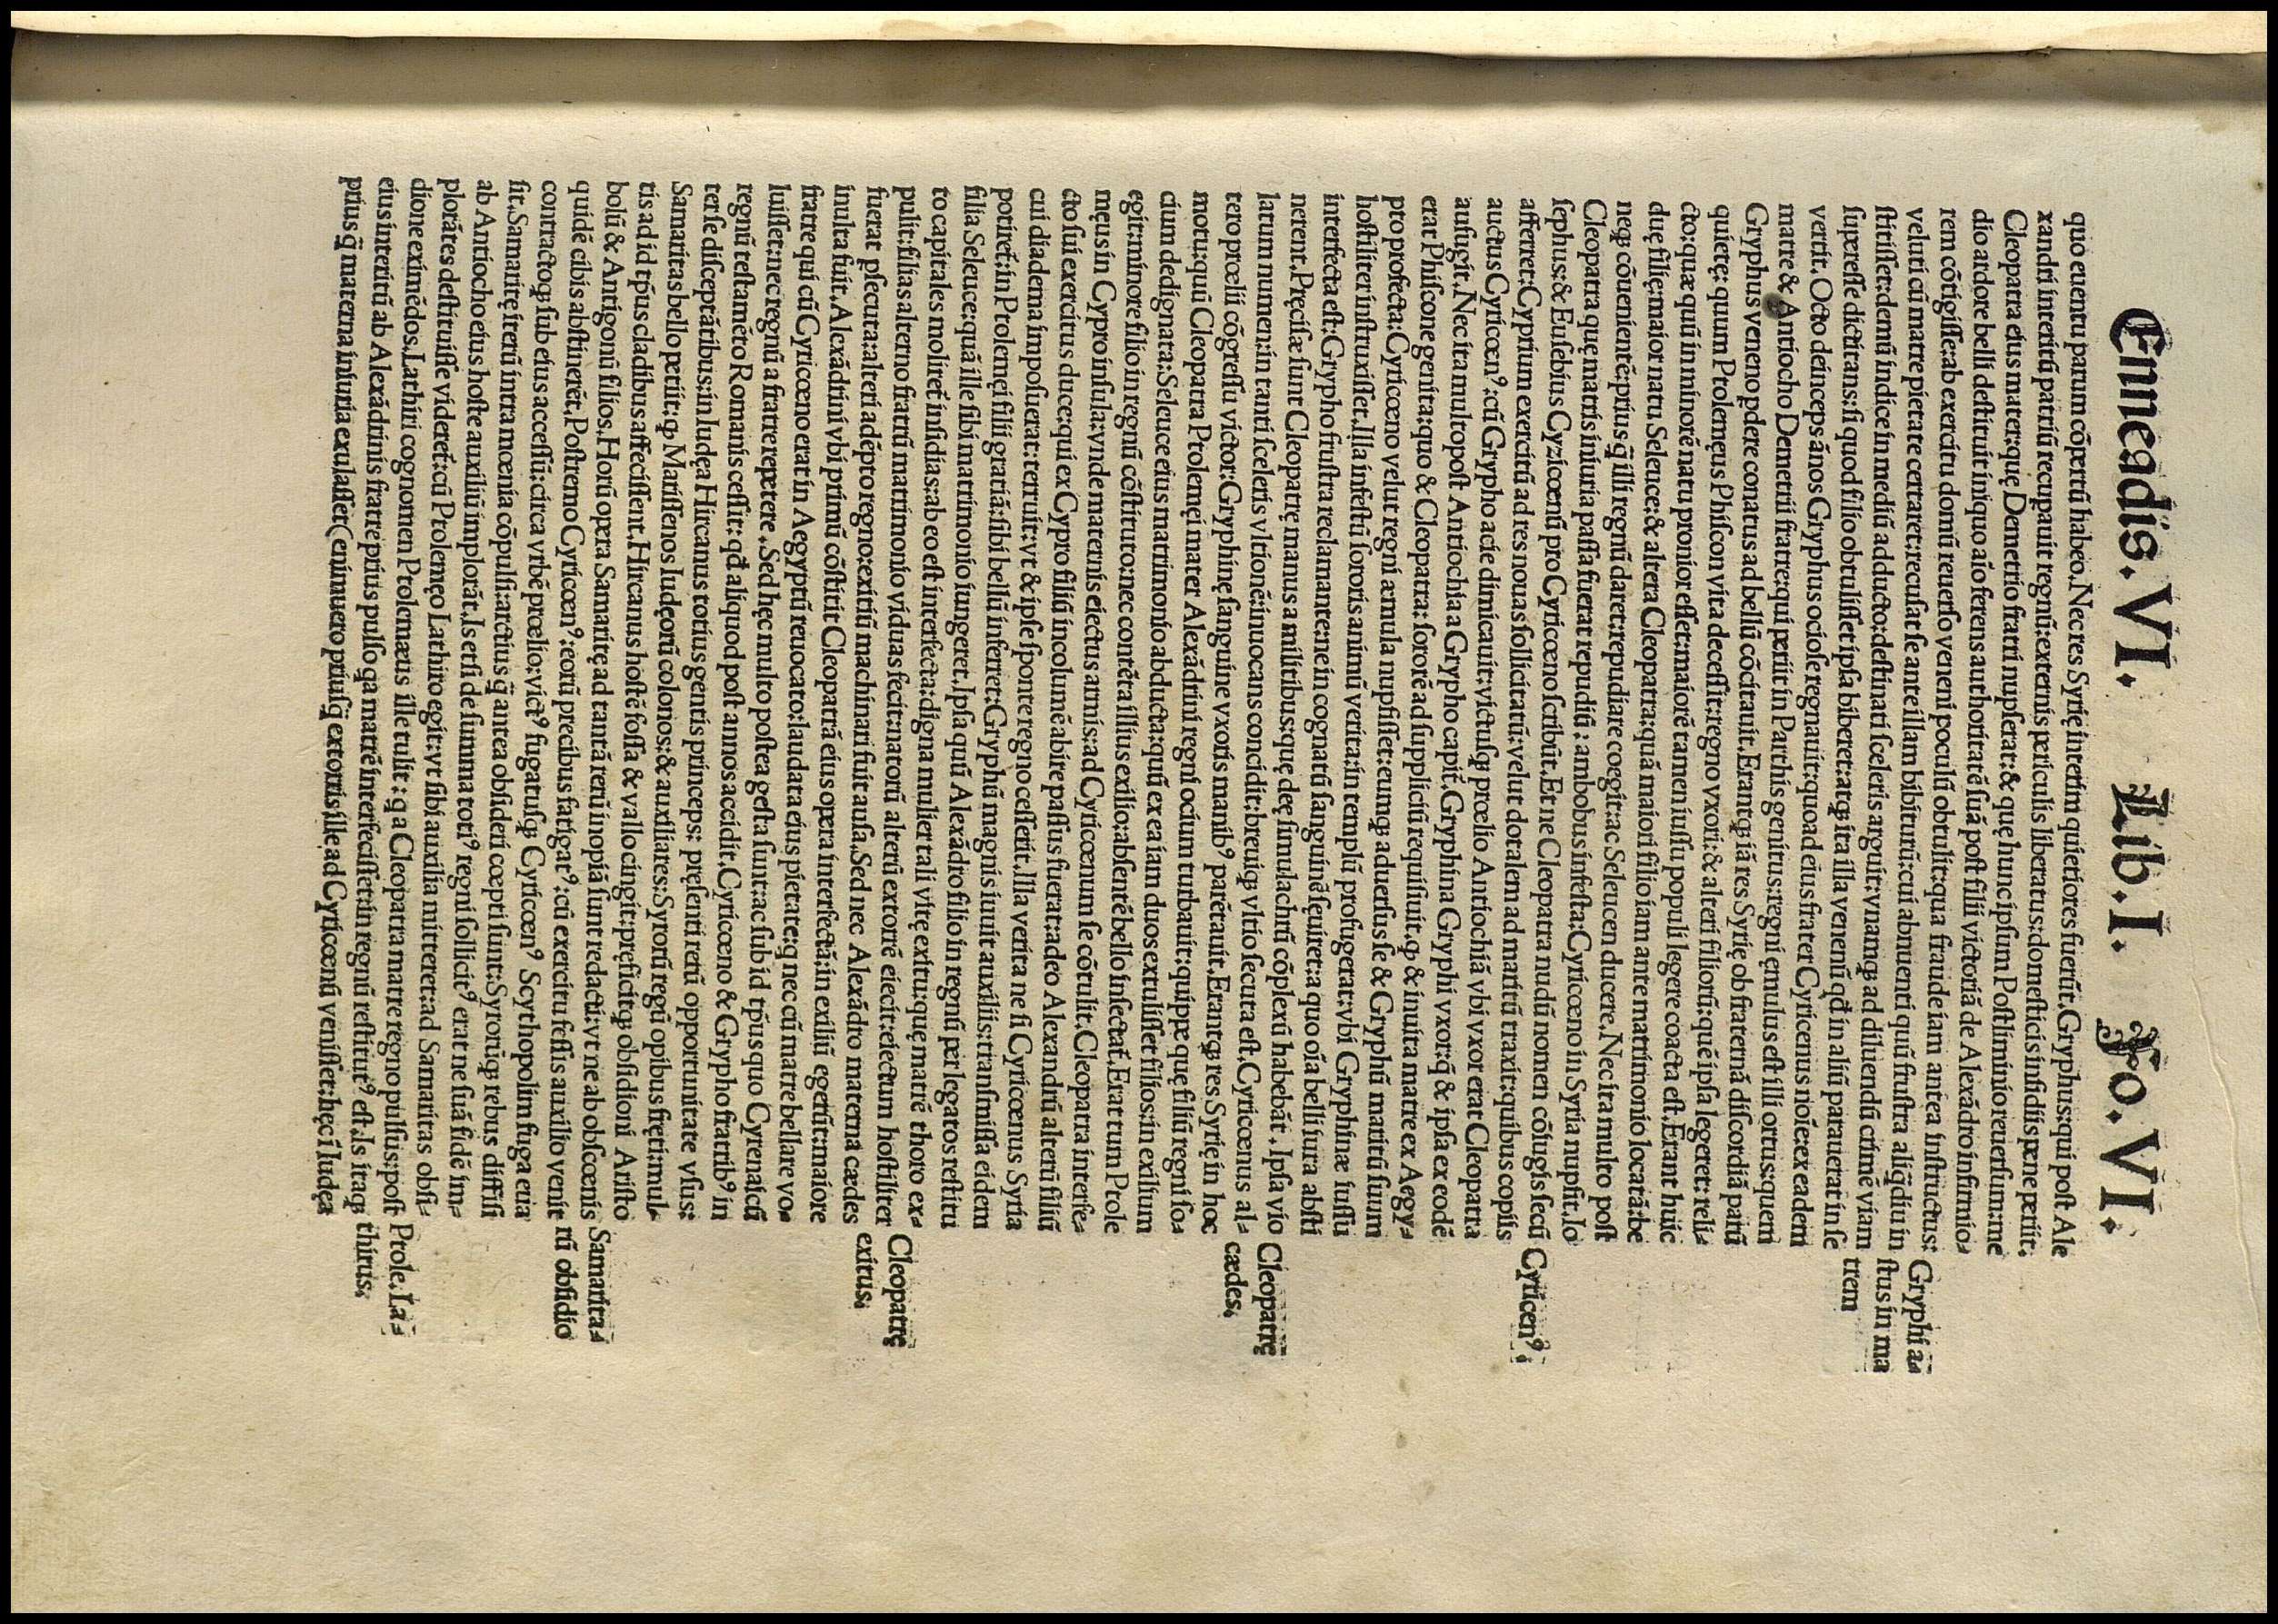 Enneadis. VI. Lib. I. Fo. VI.
quo euentu parum cōpertū habeo. Nec res Syrię interim quietiores fuerūt. Gryphus: qui post Ale
xandri interitū patriū recupauit regnū: externis periculis liberatus: domesticis insidiis pæne periit:
Cleopatra eius mater: quę Demetrio fratri nupserat: & quę hunc ipsum Postliminio reuersum: me
dio ardore belli destituit iniquo aīo ferens authoritatē suā post filii victoriā de Alexādro infirmio⸗
rem cōtigisse: ab exercitu domū reuerso veneni poculū obtulit: qua fraude iam antea instructus: Gryphi a⸗
veluti cū matre pietate certaret: recusat se ante illam bibiturū: cui abnuenti quū frustra aliq̄diu in stus in ma
stitisset: demū indice in mediū adducto: destinati sceleris arguit: vnamqꝫ ad diluendū crimē viam trem
superesse dictitans: si quod filio obtulisset ipsa biberet: atqꝫ ita illa venenū qđ in aliū parauerat in se
vertit. Octo deinceps ānos Gryphus ociose regnauit: quoad eius frater Cyricenus noīe: ex eadem
matre & Antiocho Demetrii fratre: qui periit in Parthis genitus: regni ęmulus est illi ortus: quem
Gryphus veneno pdere conatus ad bellū cōcitauit. Erantqꝫ iā res Syrię ob fraternā discordiā parū
quietę: quum Ptolemęus Phiscon vita decessit: regno vxori: & alteri filiorū: quē ipsa legeret: reli⸗
cto: quæ quū in minorē natu pronior esset: maiorē tamen iussu populi legere coacta est. Erant huic
duę filię: maior natu Seleuce: & altera Cleopatra: quā maiori filio iam ante matrimonio locatā: be
neqꝫ cōuenientē: prius q̄ illi regnū daret: repudiare coegit: ac Seleucen ducere. Nec ita multo post
Cleopatra quę matris iniuria passa fuerat repudiū: ambobus infesta: Cyricœno in Syria nupsit. Io
sephus: & Eusebius Cyzicœnū pro Cyricœno scribūt. Et ne Cleopatra nudū nomen cōiugis secū Cyricenꝰ.
afferret: Cyprium exercitū ad res nouas sollicitatū: velut dotalem ad maritū traxit: quibus copiis
auctus Cyricœnꝰ: cū Grypho acie dimicauit: victusqꝫ prœlio Antiochiā vbi vxor erat Cleopatra
aufugit. Nec ita multopost Antiochia a Grypho capit̄. Gryphina Gryphi vxor: q̄ & ipsa ex eodē
erat Phiscone genita: quo & Cleopatra: sororē ad suppliciū requisiuit. qꝫ & inuita matre ex Aegy⸗
pto profecta: Cyricœno velut regni æmula nupsisset: eumqꝫ aduersus se & Gryphū maritū suum
hostiliter instruxisset. Illa infestū sororis animū verita: in templū profugerat: vbi Gryphinæ iussu
interfecta est: Grypho frustra reclamante: ne in cognatū sanguinē sęuiret: a quo oīa belli iura absti
nerent. Pręcisæ sunt Cleopatrę manus a militibus: quę deę simulachrū cōplexū habebāt. Ipsa vio Cleopatrę
latum numen: in tanti sceleris vltionē: inuocans concidit: breuiqꝫ vltio secuta est. Cyricœnus al⸗ cædes.
tero prœlii cōgressu victor: Gryphinę sanguine vxoris manibꝰ parētauit. Erantqꝫ res Syrię in hoc
motu: quū Cleopatra Ptolemęi mater Alexādrini regni ocium turbauit: quippe quę filiū regni so⸗
cium dedignata: Seleuce eius matrimonio abducta: quū ex ea iam duos extulisset filios: in exilium
egit: minore filio in regnū cōstituto: nec contēta illius exilio: absentē bello insectat̄. Erat tum Ptole
męus in Cypro insula: vnde maternis eiectus armis: ad Cyricœnum se cōtulit. Cleopatra interfe⸗
cto sui exercitus duce: qui ex Cypro filiū incolumē abire passus fuerat: adeo Alexandrū alterū filiū
cui diadema imposuerat: terruit: vt & ipse sponte regno cesserit. Illa verita ne si Cyricœnus Syria
potiret̄: in Ptolemęi filii gratiā: sibi bellū inferret: Gryphū magnis iuuit auxiliis: transmissa eidem
filia Seleuce: quā ille sibi matrimonio iungeret. Ipsa quū Alexādro filio in regnū per legatos restitu
to capitales moliret̄ insidias: ab eo est interfecta: digna mulier tali vitę exitu: quę matrē thoro ex⸗
pulit: filias alterno fratrū matrimonio viduas fecit: natorū alterū extorrē eiecit: eiectum hostiliter Cleopatrę
fuerat psecuta: alteri adēpto regno: exitiū machinari fuit ausa. Sed nec Alexādro materna cædes exitus.
inulta fuit. Alexādrini vbi primū cōstitit Cleopatrā eius opera interfectā: in exiliū egerūt: maiore
fratre qui cū Cyricœno erat in Aegyptū reuocato: laudata eius pietate: q nec cū matre bellare vo⸗
luisset: nec regnū a fratre repetere. Sed hęc multo postea gesta sunt: ac sub id tp̄us quo Cyrenaicū
regnū testamēto Romanis cessit: qđ aliquod post annos accidit. Cyricœno & Grypho fratribꝰ in
ter se disceptātibus: in Iudęa Hircanus totius gentis princeps: pręsenti rerū opportunitate vsus:
Samaritas bello petiit: qꝫ Marissenos Iudęorū colonos: & auxiliares: Syrorū regū opibus fręti: mul⸗
tis ad id tp̄us cladibus affecissent. Hircanus hostē fossa & vallo cingit: pręficitqꝫ obsidioni Aristo
bolū & Antigonū filios. Horū opera Samaritę ad tantā rerū inopiā sunt redacti: vt ne ab obscœnis Samarita⸗
quidē cibis abstinerēt. Postremo Cyricœnꝰ: eorū precibus fatigatꝰ: cū exercitu fessis auxilio venit rū obsidio
contractoqꝫ sub eius accessū: circa vrbē prœlio: victꝰ fugatusqꝫ Cyricœnꝰ Scythopolim fuga eua
sit. Samaritę iterū intra mœnia cōpulsi: arctius q̄ antea obsideri cœpti sunt: Syrorūqꝫ rebus diffisi
ab Antiocho eius hoste auxiliū implorāt. Is etsi de summa totiꝰ regni sollicitꝰ erat ne suā fidē im⸗
plorātes destituisse videret̄: cū Ptolemęo Lathiro egit: vt sibi auxilia mitteret: ad Samaritas obsi⸗
dione eximēdos. Lathiri cognomen Ptolemæus ille tulit: q a Cleopatra matre regno pulsus: post Ptole. La⸗
eius interitū ab Alexādrinis fratre prius pulso qa matrē interfecisset: in regnū restitutꝰ est. Is itaqꝫ thirus.
prius q̄ materna iniuria exulasset (enimuero priusq̄ extorris ille ad Cyricœnū venisset: hęc ī Iudęa